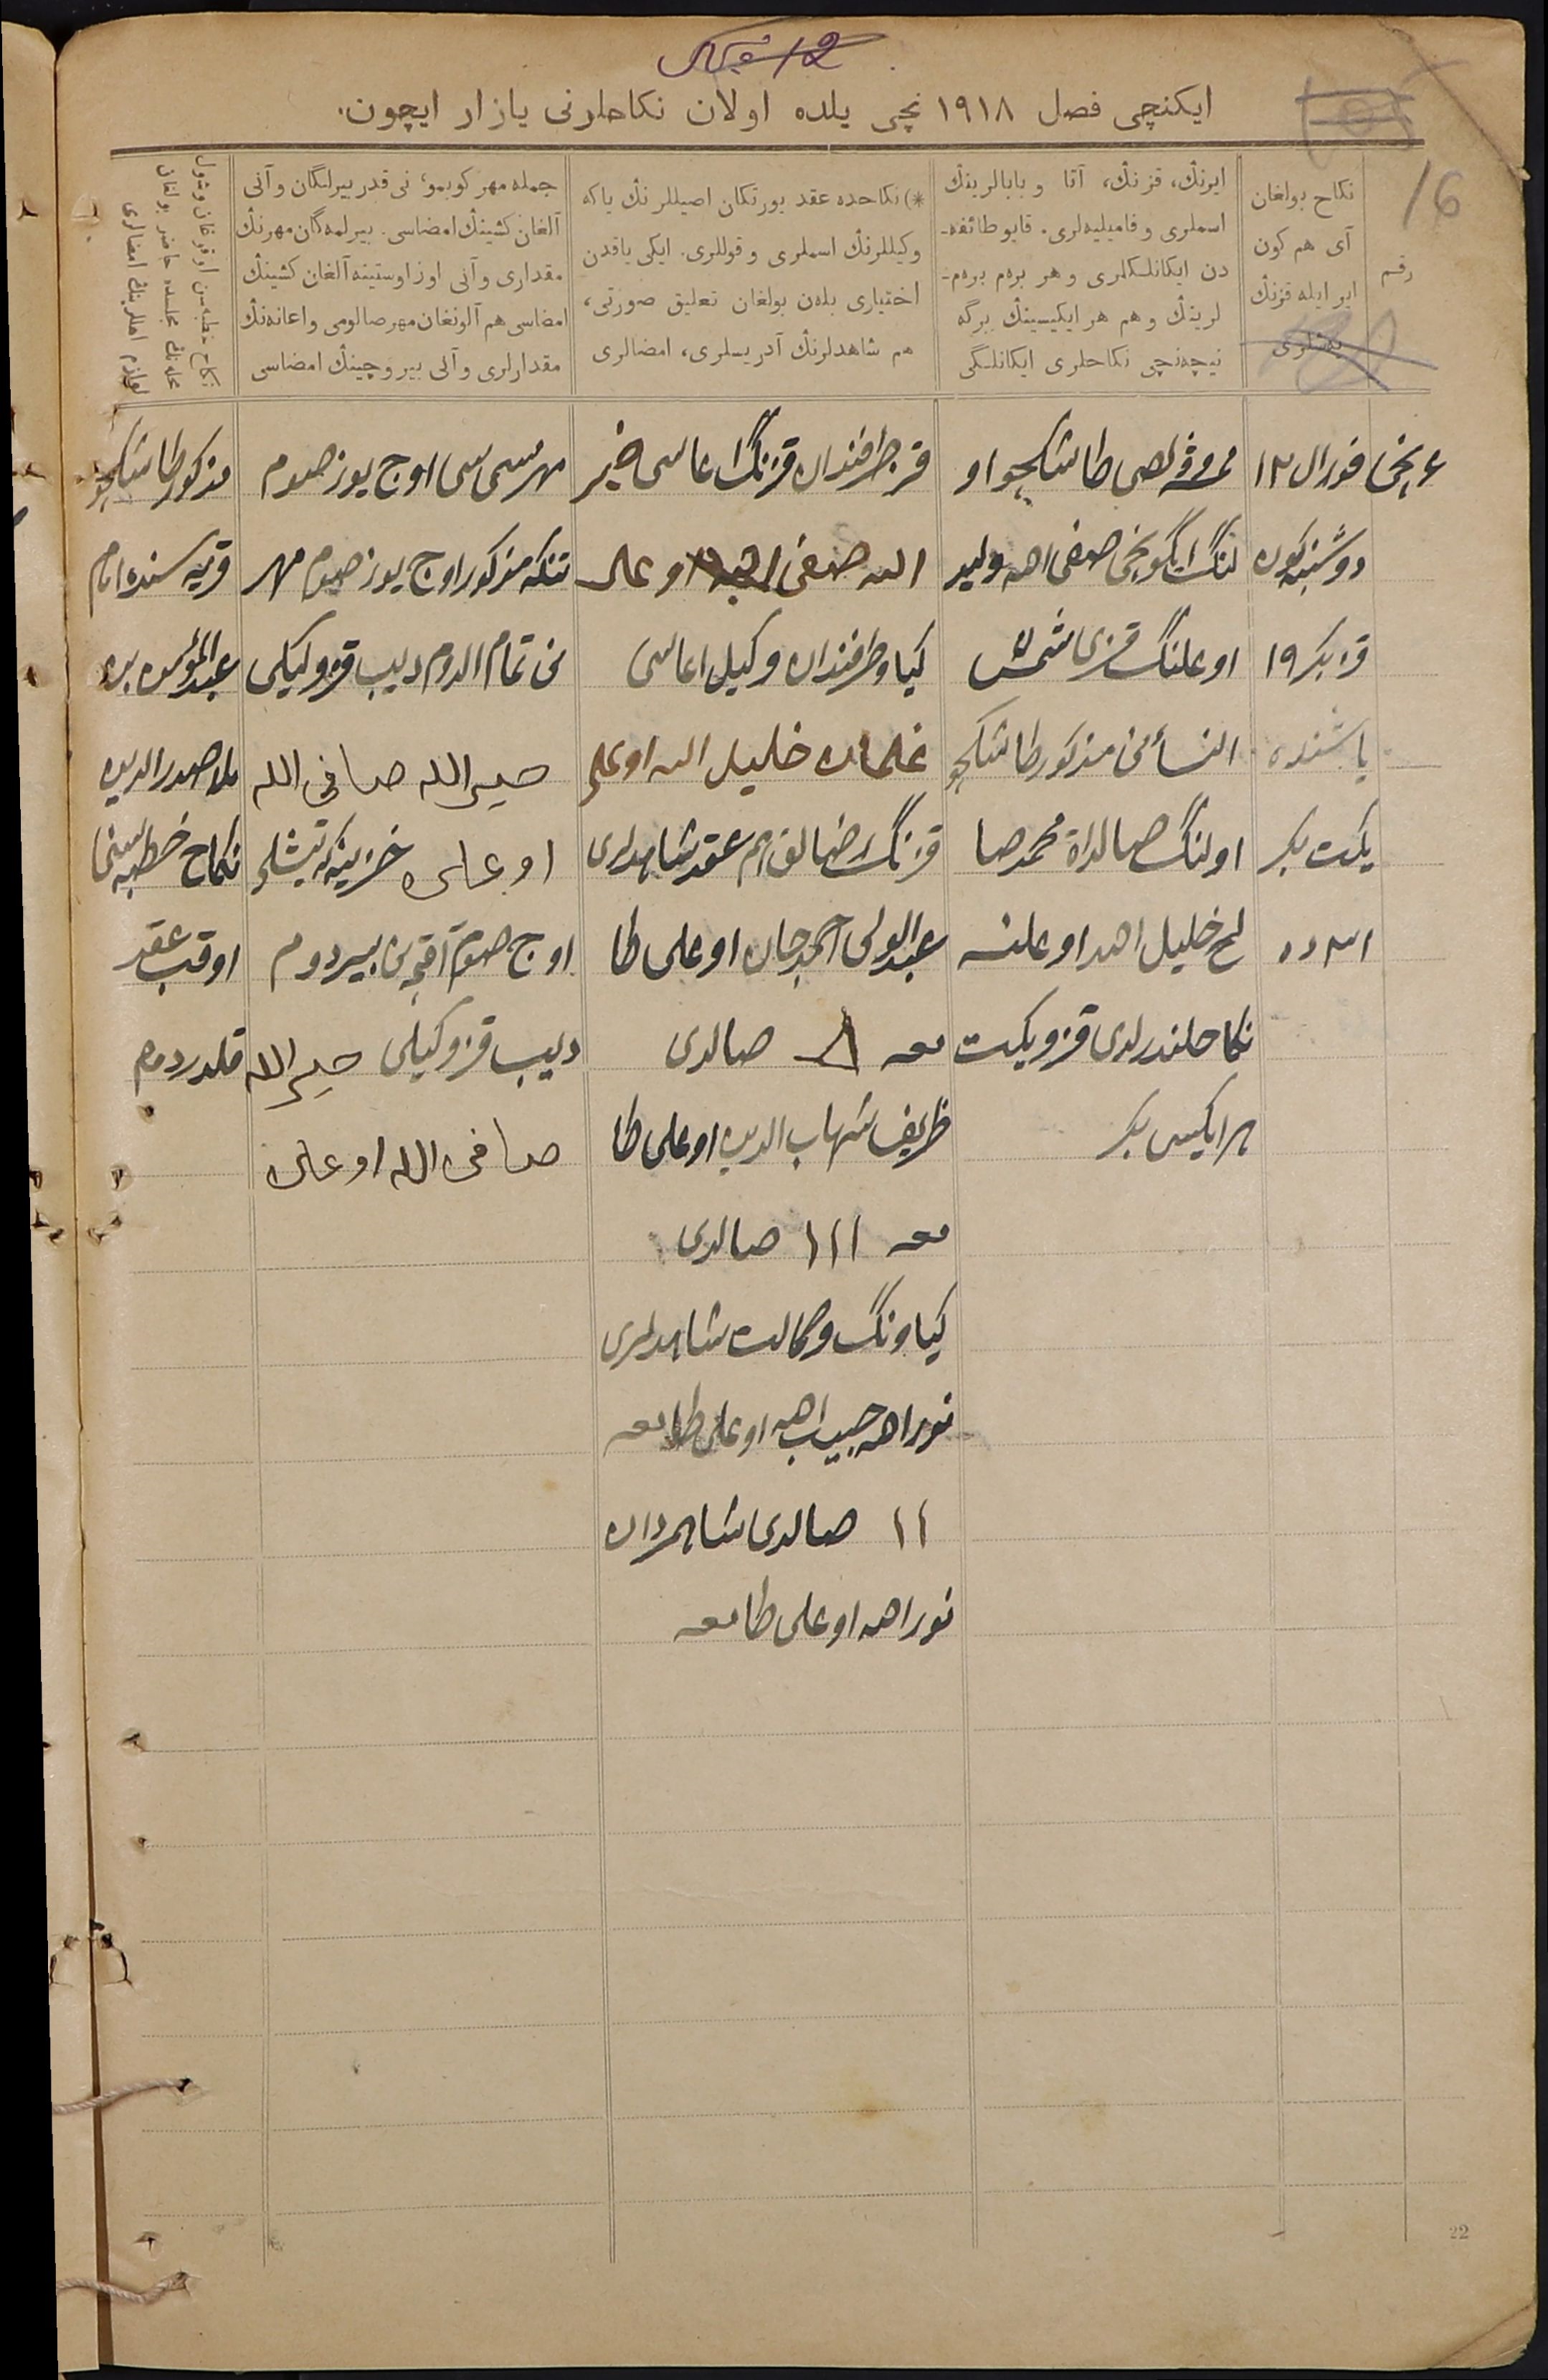 12
ایکنچی فصل ۱۹۱۸ نچی یلده اولان نکاحلرنی یازار ایچون.
16
رقم
نکاح بولغان
آی هم کون
ایر ایله قزنڭ
یەشلری
ایرنڭ، قزنڭ، آتا و بابالرینڭ
اسملری و فامیلیەلری. قایو طائفه-
دن ایکانلکلری و هر برەم برەم-
لرینڭ و هم هر ایکیسینڭ برگه
نیچەنچی نکاحلری ایکانلگی
*) نکاحده عقد یورتکان اصیللرنڭ یاکه
وکیللرنڭ اسملری و قوللری. ایکی یاقدن
اختیاری بلەن بولغان تعلیق صورتی،
هم شاهدلرنڭ آدریسلری، امضالری
جمله مهر کوبمو، نی قدر بیرلگان و آنی
آلغان کشینڭ امضاسی. بیرلمەگان مهرنڭ
مقداری و آنی اوز اوستینه آلغان کشینڭ
امضاسی هم آلونغان مهر صالومی و اعانەنڭ
مقدارلری و آلی بیروچینڭ امضاسی
نکاح خطبەسن اوقوغان و شول
محلەنڭ مجلسده حاضر بولغان
لوازم اهللرینڭ امضالری
۴ نچی
فورال ۱۲
دوشنبه کون
قز بکر ۱۹
یاشنده
یکت بکر
ده
طاشکچو او
لنگ صفی الله ولید
اوغلنگ قزی شمس
النسأنی مذکور طاشکچو
اولنگ محمد صا
لح خلیل الله اوغلنه
نکاحلندرلدی قز ویکت
هر ایکیسی بکر
قز طرفندان قزنگ اغاسی خیر
الله صفی الله اوغلی
کیاو طرفندان وکیل اغاسی
غلمان خلیل الله اوغلی
قزنگ رضالق هم عقد شاهدلری
عبدالولی احمدجان اوغلی طا
مغه صالدی
ظریف شهاب الدین اوغلی طا
مغه ۱۱۱ صالدی
کیاونگ وکالت شاهدلری
نورالله حبیب الله اوغلی طامغه
۱۱ صالدی شاهردان
نورالله اوغلی طامغه
مهر مسی سی اوچ یوز صوم
تنکه مذکور اوچ یوز صوم مهر
نی تمام الدوم دیب قز وکیلی
خیرالله صافی الله
اوغلی خزینەکه تیشلی
اوچ صوم آقچەنی بیردوم
دیب قز وکیلی خیرالله
صافی الله اوغلی
مذکور طاشکچو
قریەسنده امام
عبدالمؤمن بن
ملا صدرالدین
نکاح خطبەسنی
اوقب عقد
قلدردم
22